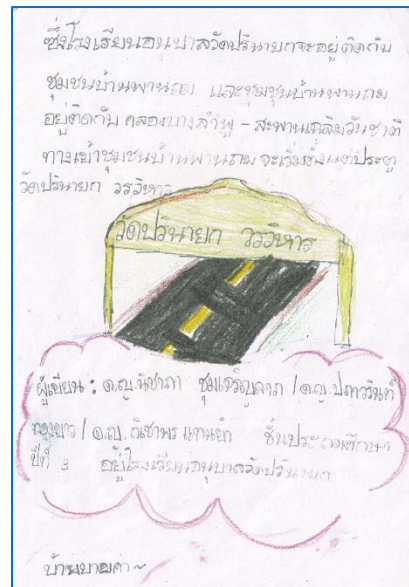 ซึ่งโรงเรียนอนุบาลวัดปรินายกจะอยู่ติดกับ
ชุมชนบ้านพานถม และชุมชนบ้านพานถม
อยู่ติดกับ คลองบางลำพู - สะพานเฉลิมวันชาติ
ทางเข้าชุมชนบ้านพานถม จะเริ่มตั้งแต่ประตู
วัดปรินายก วรวิหาร
วัดปรินายก วรวิหาร
ผู้เขียน : ด.ญ. ณิชาภา / ด.ญ.
ทองขาว / ด.ญ. ชั้นประถมศึกษา
ปีที่ 3 อยู่โรงเรียนอนุบาลวัดปรินายก
บ๊ายบายค่า ~